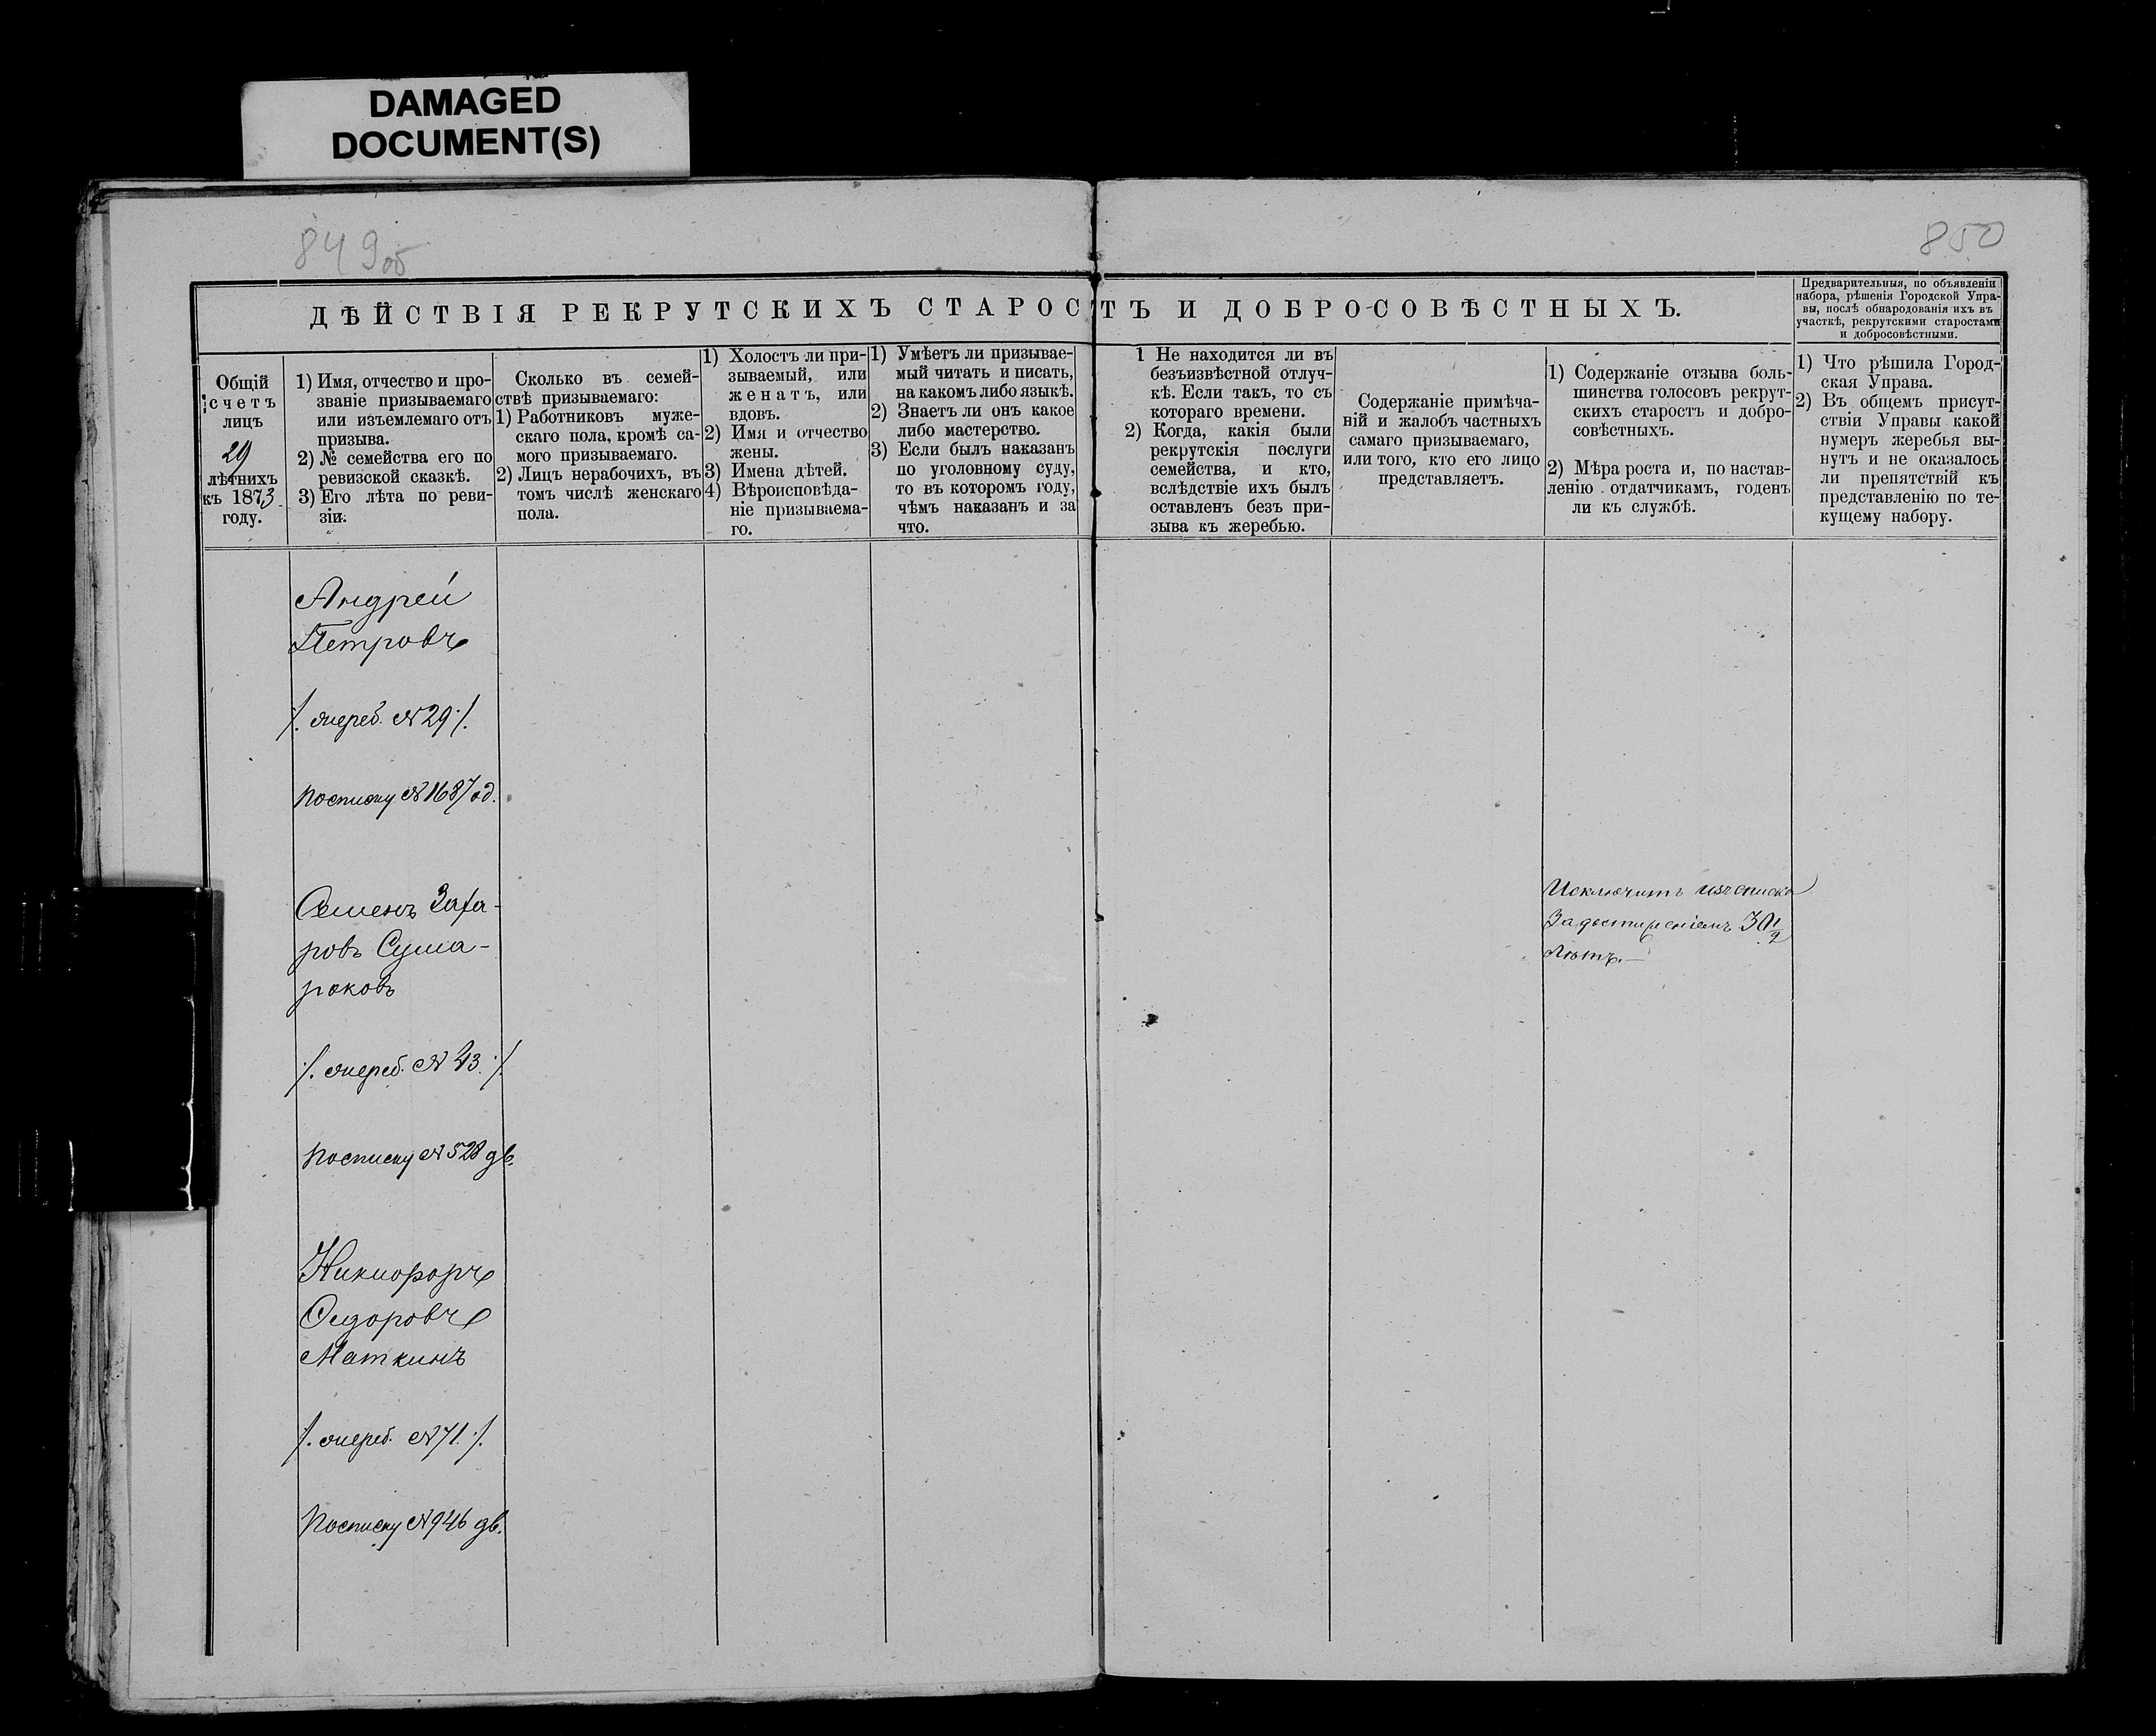 DAMAGED
DOCUMENT(S)
849об
850
ДѢЙСТВІЯ РЕКРУТСКИХЪ СТАРОСТЪ И ДОБРО-СОВѢСТНЫХЪ.
Предварительныя, по объявленіи
набора, рѣшенія Городской Упра-
вы, послѣ обнародованія ихъ въ
участкѣ, рекрутскими старостами
и добросовѣстными.
Общій
счетъ
лицъ
29
лѣтнихъ
къ 1873
году.
1) Имя, отчество и про-
званіе призываемаго
или изъемлемаго отъ
призыва.
2) № семейства его по
ревизской сказкѣ.
3) Его лѣта по реви-
зіи.
Сколько въ семей-
ствѣ призываемаго:
1) Работниковъ муже-
скаго пола, кромѣ са-
мого призываемаго.
2) Лицъ нерабочихъ, въ
томъ числѣ женскаго
пола.
1) Холостъ ли при-
зываемый, или
женатъ, или
вдовъ.
2) Имя и отчество
жены.
3) Имена дѣтей.
4) Вѣроисповѣда-
ніе призываема-
го.
1) Умѣетъ ли призывае-
мый читать и писать,
на какомъ либо языкѣ.
2) Знаетъ ли онъ какое
либо мастерство.
3) Если былъ наказанъ
по уголовному суду,
то въ которомъ году,
чѣмъ наказанъ и за
что.
1 Не находится ли въ
безъизвѣстной отлуч-
кѣ. Если такъ, то съ
котораго времени.
2) Когда, какія были
рекрутскія послуги
семейства, и кто,
вслѣдствіе ихъ былъ
оставленъ безъ при-
зыва къ жеребью.
Содержаніе примѣча-
ній и жалобъ частныхъ
самаго призываемаго,
или того, кто его лицо
представляетъ.
1) Содержаніе отзыва боль-
шинства голосовъ рекрут-
скихъ старостъ и добро-
совѣстныхъ.
2) Мѣра роста и, по настав-
ленію отдатчикамъ, годенъ
ли къ службѣ.
1) Что рѣшила Город-
ская Управа.
2) Въ общемъ присут-
ствіи Управы какой
нумеръ жеребья вы-
нутъ и не оказалось
ли препятствій къ
представленію по те-
кущему набору.
Андрей
Петровъ
/. жереб. №29 /.
по списку №1687 од.
Семенъ Заха-
ровъ Сума-
роковъ
Исключить изъ списка
За достиженіемъ 30 1/2
лѣтъ.—
/. жереб. № 43. /.
по списку №528 дв.
Никифоръ
Ѳедоровъ
Маткинъ
/. жереб. №71. /.
по списку №946 дв.